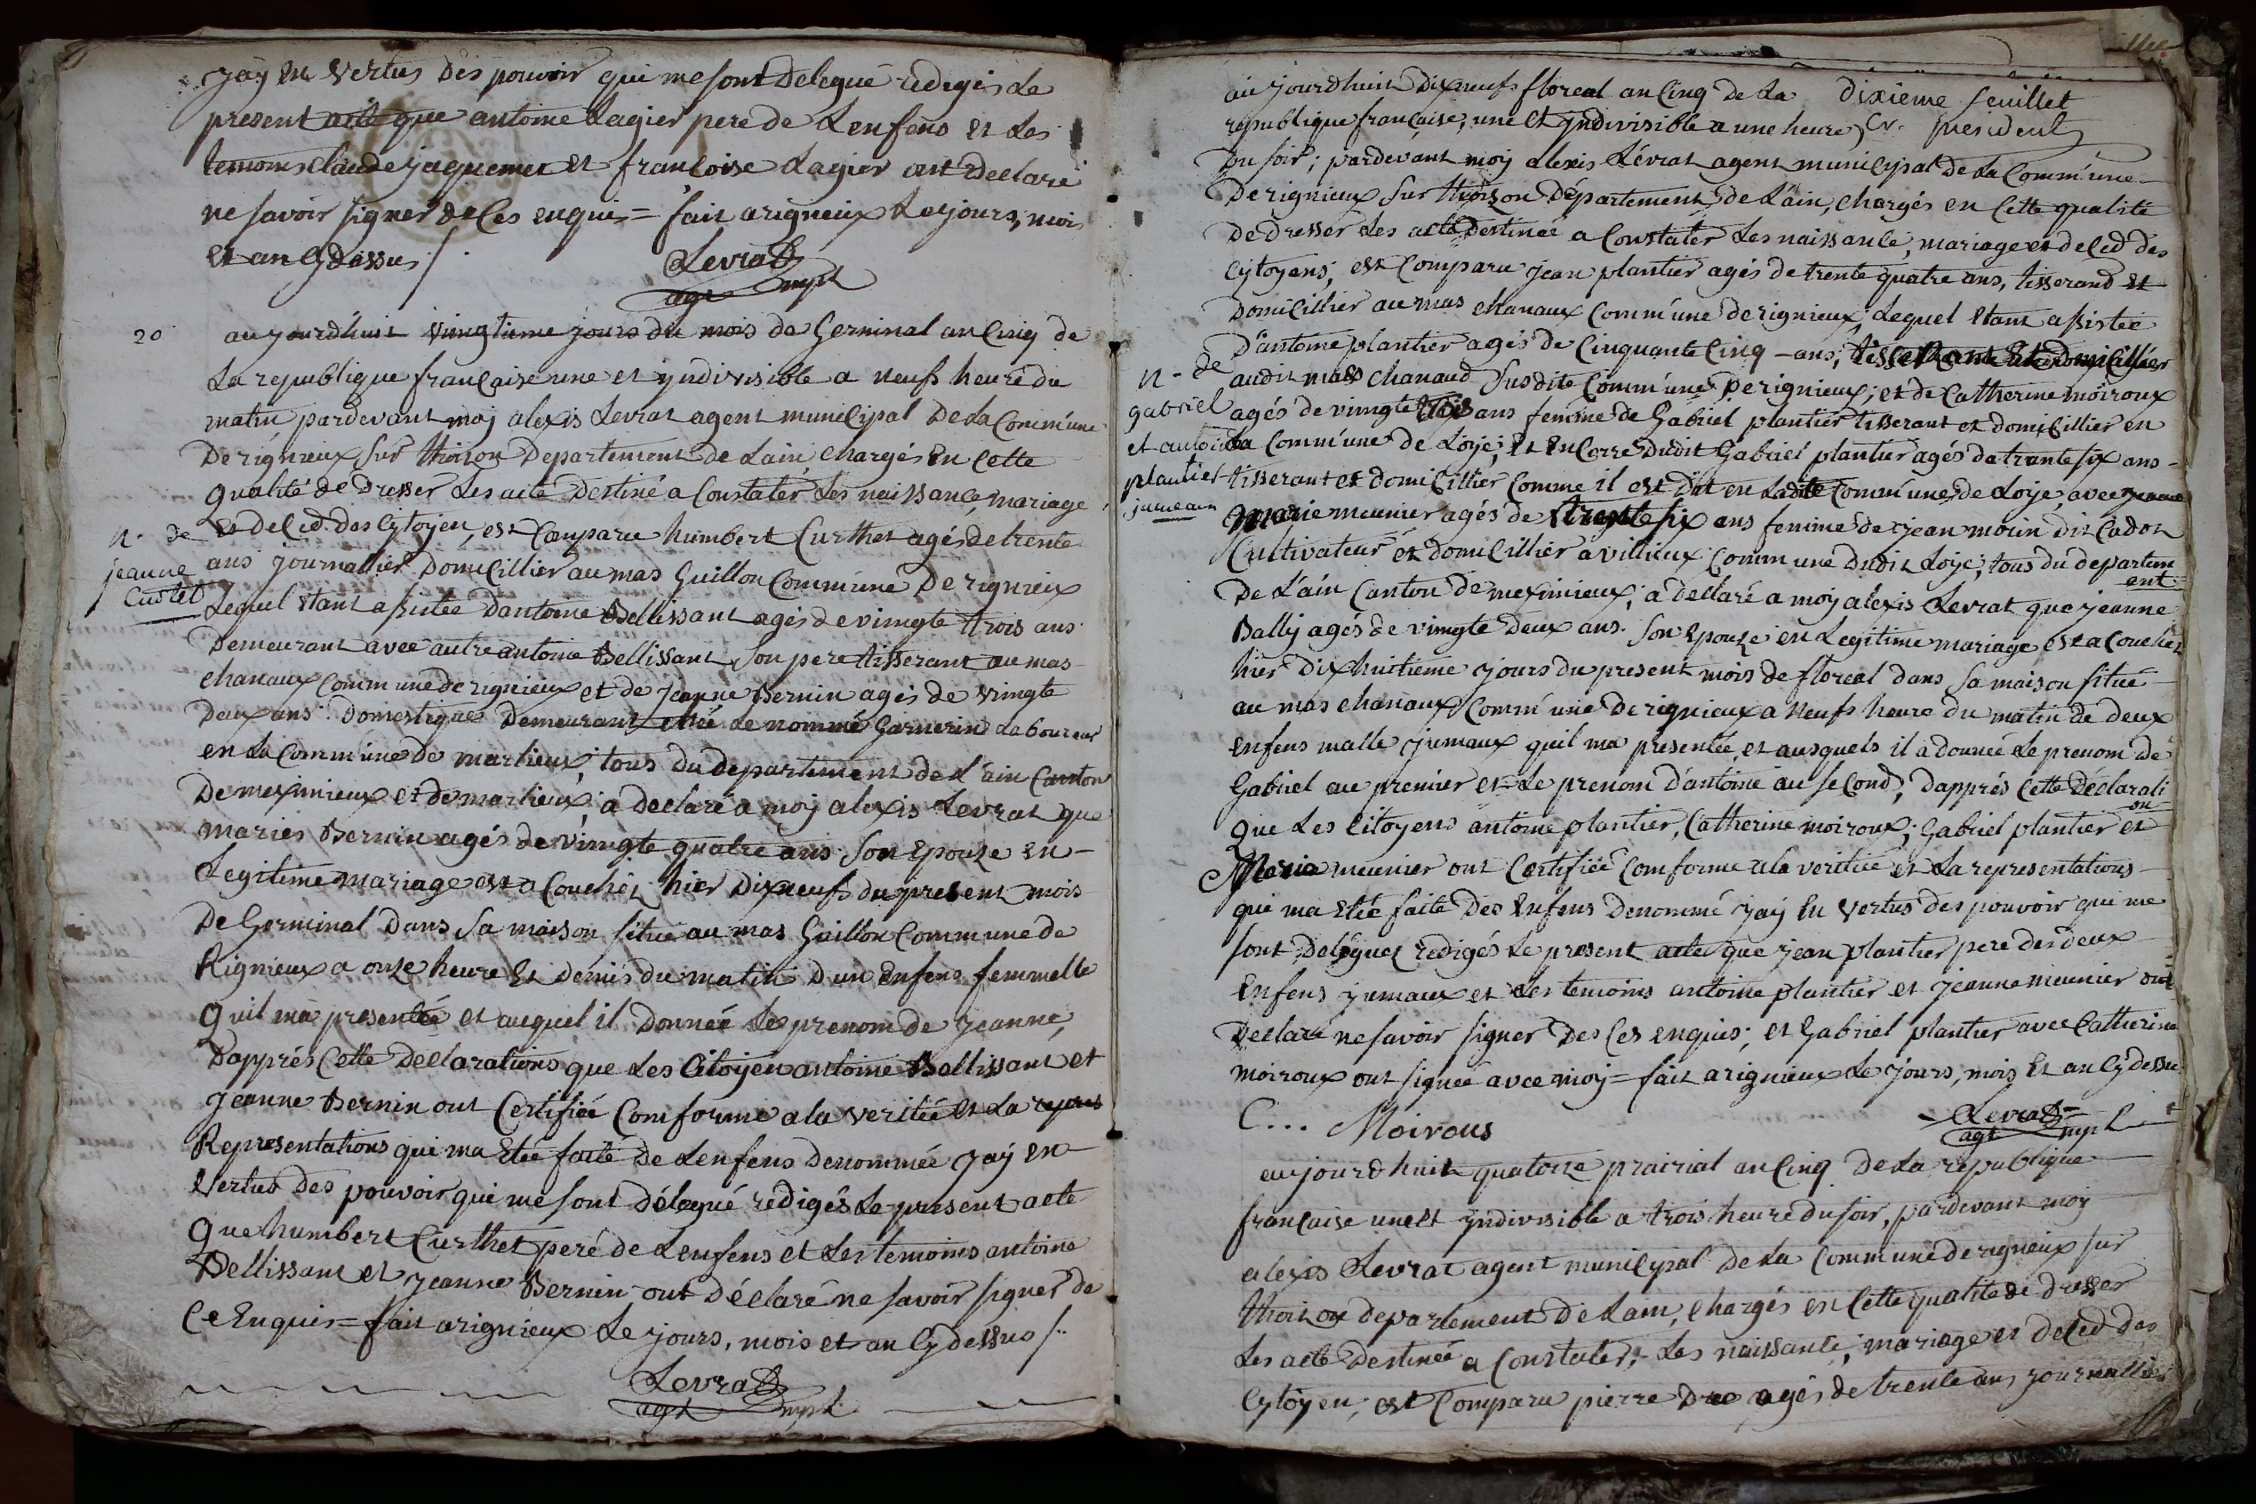 jaÿ En Vertus des pouvoir qui me sont Delegué redegés Le
present acte que antoine Lagier pere de Lenfens et Les
temoins Claude jaquemet et francoise Lagier ont Declaré
ne savoir signer de Ces enquis = fait a rigneux Le jours, mois
Et an Cy dessus /.
Levrat
agt mpl
20
aujourdhuit vingtieme jours du mois de Germinal an Cinq de
La republique francaise une et yndivisible a neufs heure du
matin pardevant moj alexis Levrat agent municipal De La Comm'une
De rignieux Sur thoison Departement de Lain, chargés En Cette
qualité de Dresser Les acte Destiné a Constater Les naissance, mariage
Et deCed. des Cytoyen, est Comparu humbert Curthet agés de trente
n. de
jeanne
Curtet
ans journallier Domicillier au mas Guillon Comm'une De rignieux
Lequel Etant assistée Dantoine Bellissant agés de vimgte trois ans
Demeurant avec autre antoine Bellissant Son pere tisserant au mas
chanaux Commune de rignieux et de jeanne Bernin agés de vimgte
Deux ans Domestique Demeurant chée Le nommé Garnerin Laboureur
en La Comm'une de marlieux; tous du departement de L'ain Canton
De meximieux et de marlieux; a declaré a moj alexis Levrat que
mariés Bernin agés de vimgte quatre ans Son Epouze En
Legitime mariage est a Couchéz hier Dix neufs du present mois
De Germinal Dans Sa maison situé au mas Guillon Commune de
Rignieux a onze heure Et demis du matin D'un Enfens femmelle
quil ma presentée et auquel il Donnée Le prenom de jeanne,
Dapprés Cette Declarations que Les Citoyen antoine Bellissant et
jeanne Bernin ont Certifiée Comforme a la veritée et La repres
Representations qui ma Etée faite De Lenfens Denommée jaÿ En
Vertus Des pouvoir qui me sont Délegué redigés Le present acte
Que humbert Curthet peré de Lenfens et Les temoins antoine
Bellissant et jeanne Bernin ont Déclaré ne savoir signer de
Ce Enquis = fait a rignieux Le jours, mois et an Cy dessus /.
Levrat
agt mpl
Dixieme feuillet
président
aujourdhuit Dix neufs floreal an Cinq de La
republique francaise, une Et yndivisible a une heure
Du soir; pardevant moÿ alexis Lévrat agent municipal de La Comm'une
De rignieux Sur thoison Département de Lain, chargés en Cette qualité
De dresser Les acte Destinée a Constater Les naissance, mariage et deCed des
Cytoyens; est Comparu jean plantier agés de trente quatre ans, tisserand et
Domicillier au mas chanaux Comm'une de rignieux; Lequel Etant assistée
D'antoine plantier agés de Cinquante Cinq ans, tisserant et Domicillier
n. de
gabriel
et antoine
plantier
jumeaux
audit mas chanaud Susdite Comm'une De rignieux; et de Catherine moiroux
agés de vimgte trois ans femme de Gabriel plantier tisserant et domicillier en
La Comm'une de Loye; Et En Corre Dudit Gabriel plantier agés de trante six ans
tisserant et domicillier Comme il est dit en Ladite Comm'une de Loye, avec jeanne
Marie meunier agés de trente six ans femme de jean moin dit Cadot
Cultivateur et domicillier a villieux Comm une Dudit Loye; tous du departem
ent
De L'ain Canton de meximieux; a declaré a moÿ alexis Levrat que jeanne
Ballÿ agés de vimgte Deux ans. Son Epouze en Legitime mariage est a Couchéz
hier Dix huitieme jours du present mois de floreal dans Sa maison situé
au mas chanaux Comm'une De rignieux a Neufs heure du matin de deux
enfens malle jumaux quil ma presentée, et ausquels il a donneé Le prenom de
Gabriel au premier et Le prenom d'antoine au seCond; dapprés Cette Declarati
on
Que Les Citoyens antoine plantier, Catherine moiroux; Gabriel plantier et
Marie meunier ont Certifiée Comforme a la veritée et La representations
qui ma Etée faite Des Enfens Denommé jaÿ En Vertus des pouvoir qui me
sont Deléguez redigés Le present acte que jean plantier pere des deux
Enfens jumaux et Les temoins antoine plantier et jeanne meunier ont
Declaré ne savoir signer Des Ces enquis; et Gabriel plantier avec Catherine
moiroux ont signeé avec moÿ = fait a rignieux Le jours, mois Et an Cy dessus
C... Moirous
Levrat
agt mpl
aujourdhuit quatorze prairial an Cinq De La republique
francaise une Et yndivisible a trois heure du soir, pardevant moÿ
alexis Levrat agent municipal De La Commune de rigneux sur
thoison departement De Lain, chargés en Cette qualité de Dresser
Les acte Destinée a Constater, Les naissance, mariage et deCed Des
Cytoÿen; est Comparu pierre Druo agés de trente ans journallier